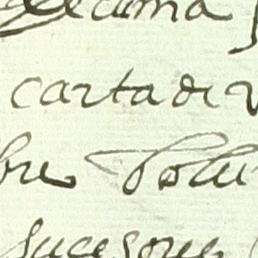 decima
carta di
bre Poli
sucesores